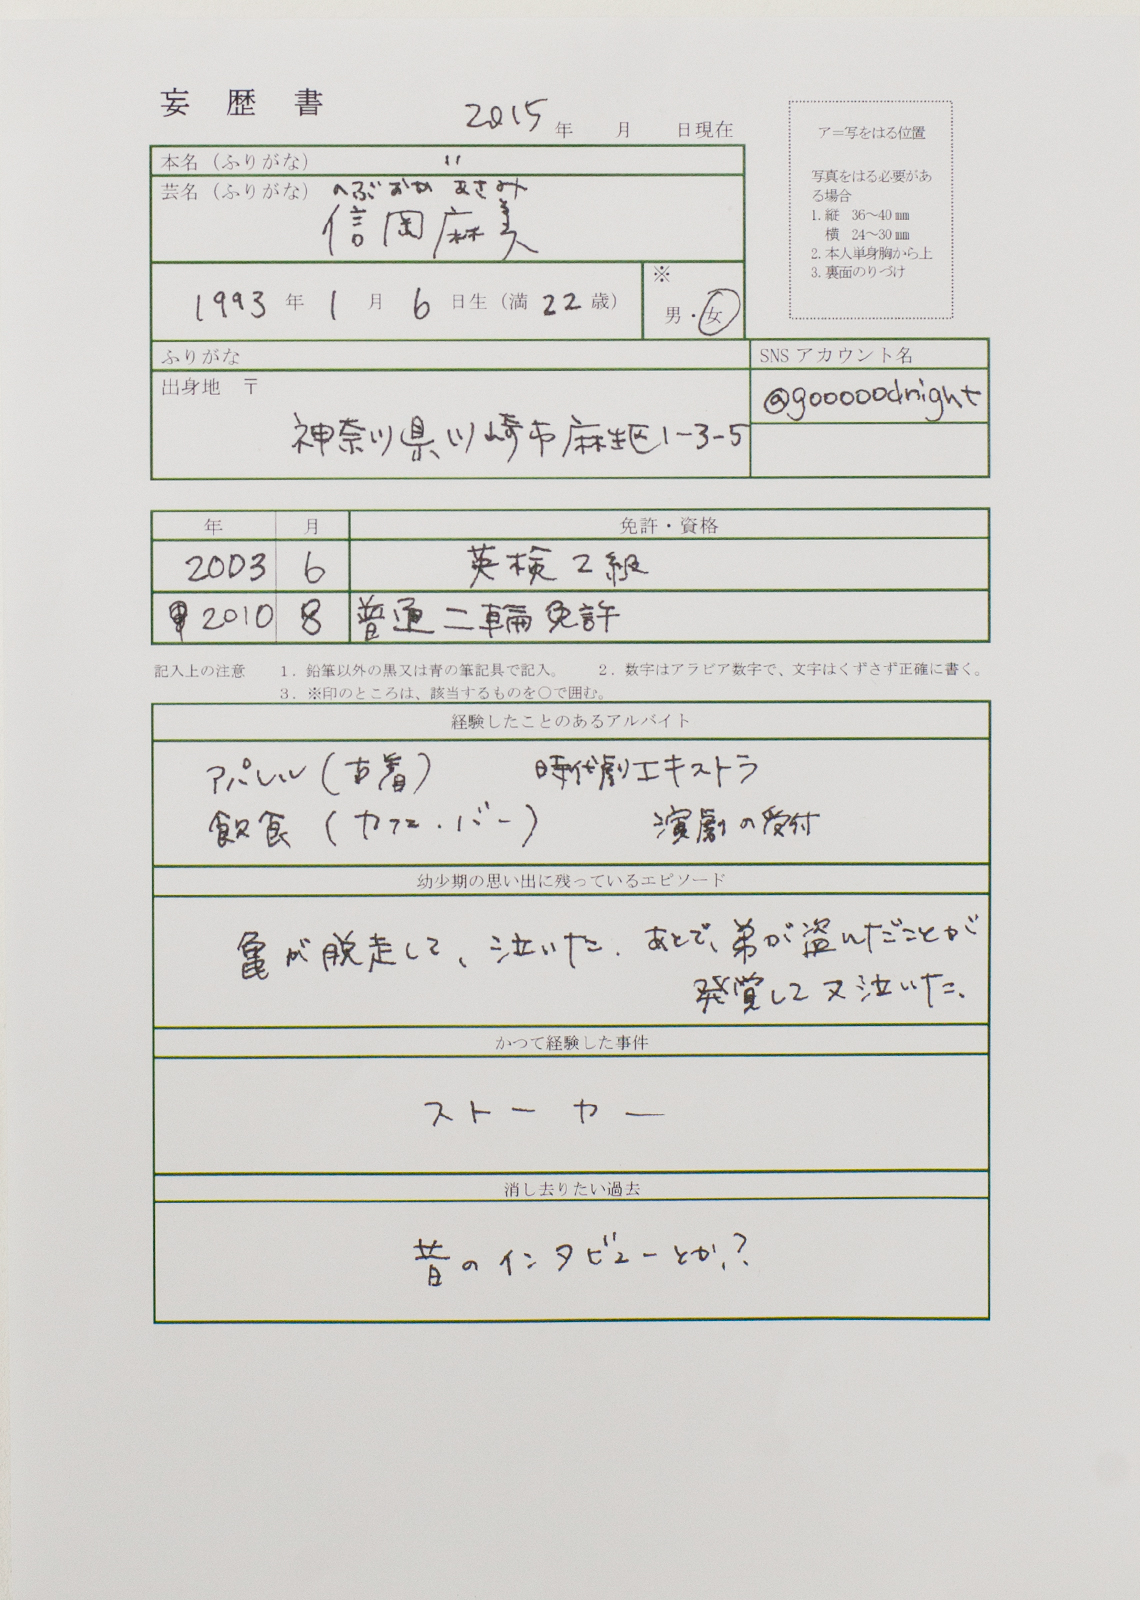 妄歴書
2015年 月 日現在
本名（ふりがな） 〃
芸名（ふりがな） のぶおか あさみ
信岡麻美
1993年1月6日生（満22歳）
※
男・女
ア＝写をはる位置
写真をはる必要があ
る場合
1. 縦 36～40㎜
横 24～30㎜
2. 本人単身胸から上
3. 裏面のりづけ
ふりがな
出身地 〒
神奈川県川崎市麻生区1-3-5
SNS アカウント名
@gooooodnight
年 月 免許・資格
2003 6 英検2級
2010 8 普通二輪免許
記入上の注意 1．鉛筆以外の黒又は青の筆記具で記入。 2．数字はアラビア数字で、文字はくずさず正確に書く。
3．※印のところは、該当するものを○で囲む。
経験したことのあるアルバイト
アパレル（古着） 時代劇エキストラ
飲食（カフェ・バー） 演劇の受付
幼少期の思い出に残っているエピソード
亀が脱走して、泣いた．あとで、弟が盗んだことが
発覚して又泣いた、
かつて経験した事件
ストーカー
消し去りたい過去
昔のインタビューとか、？